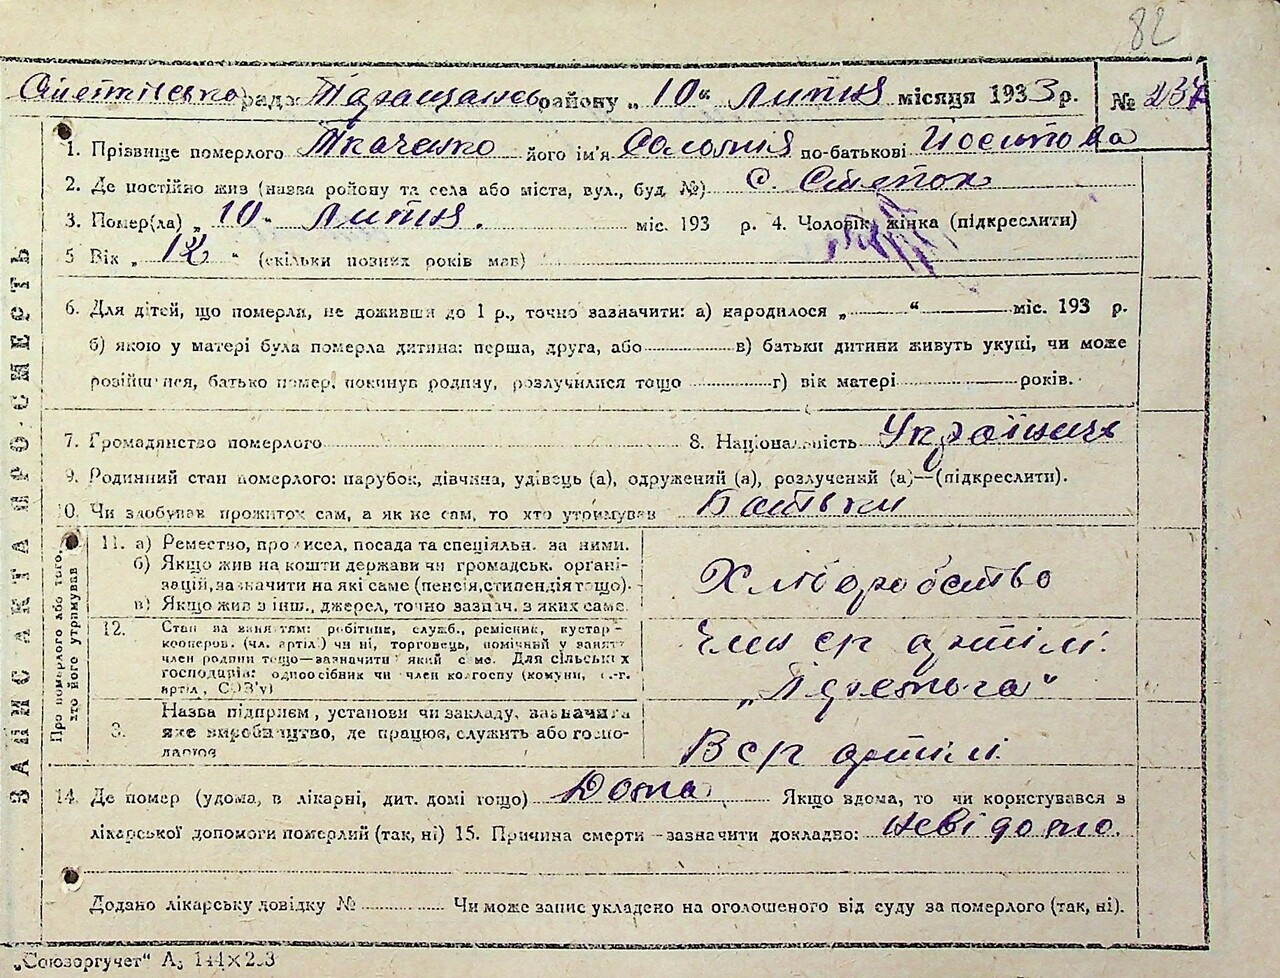 82
рада району „10“ липня місяця 1933 р. № 237
1. Прізвище померлого Ткаченко його ім'я Соломія по-батькові Йосипова
2. Де постійно жив (назва району та села або міста, вул., буд. №) с. Степок
3. Помер(ла) „10“ липня. міс. 193 р. 4. Чоловік, жінка (підкреслити)
5 Вік „12“ (скільки повних років мав)
6. Для дітей, що померли, не доживши до 1 р., точно зазначити: а) народилося „ “ міс. 193 р.
б) якою у матері була померла дитина: перша, друга, або в) батьки дитини живуть укупі, чи може
розійшлися, батько помер, покинув родину, розлучилися тощо г) вік матері років.
7. Громадянство померлого 8. Національність Українець
9. Родинний стан померлого: парубок, дівчина, удівець (а), одружений (а), розлучений (а)—(підкреслити).
10. Чи здобував прожиток сам, а як не сам, то хто утримував Батьки
11. а) Ремество, промисел, посада та спеціяльн. за ними.
б) Якщо жив на кошти держави чи громадськ. органі-
зацій, зазначити на які саме (пенсія, стипендія тощо).
в) Якщо жив з інш., джерел, точно зазнач. з яких саме.
Хліборобство
12. Стан за заняттям: робітник, служб., ремісник, кустар-
кооперов. (чл. артілі) чи ні, торговець, помічний у занятт
член родини тощо—зазначити який саме. Для сільських
господарів: одноосібник чи член колгоспу (комуни, с.-г.
артіл., СОЗ'у)
Член ср артілі
3. Назва підприєм, установи чи закладу, зазначити
яке виробництво, де працює, служить або госпо-
дарює
В ср артілі
14. Де помер (удома, в лікарні, дит. домі тощо) Дома Якщо вдома, то чи користувався з
лікарської допомоги померлий (так, ні) 15. Причина смерти—зазначити докладно: невідомо.
Додано лікарську довідку № Чи може запис укладено на оголошеного від суду за померлого (так, ні).
„Союзоргучет“ А₅ 144×203
ЗАПИС АКТА ПРО СМЕРТЬ
Про померлого або того,
хто його утримував